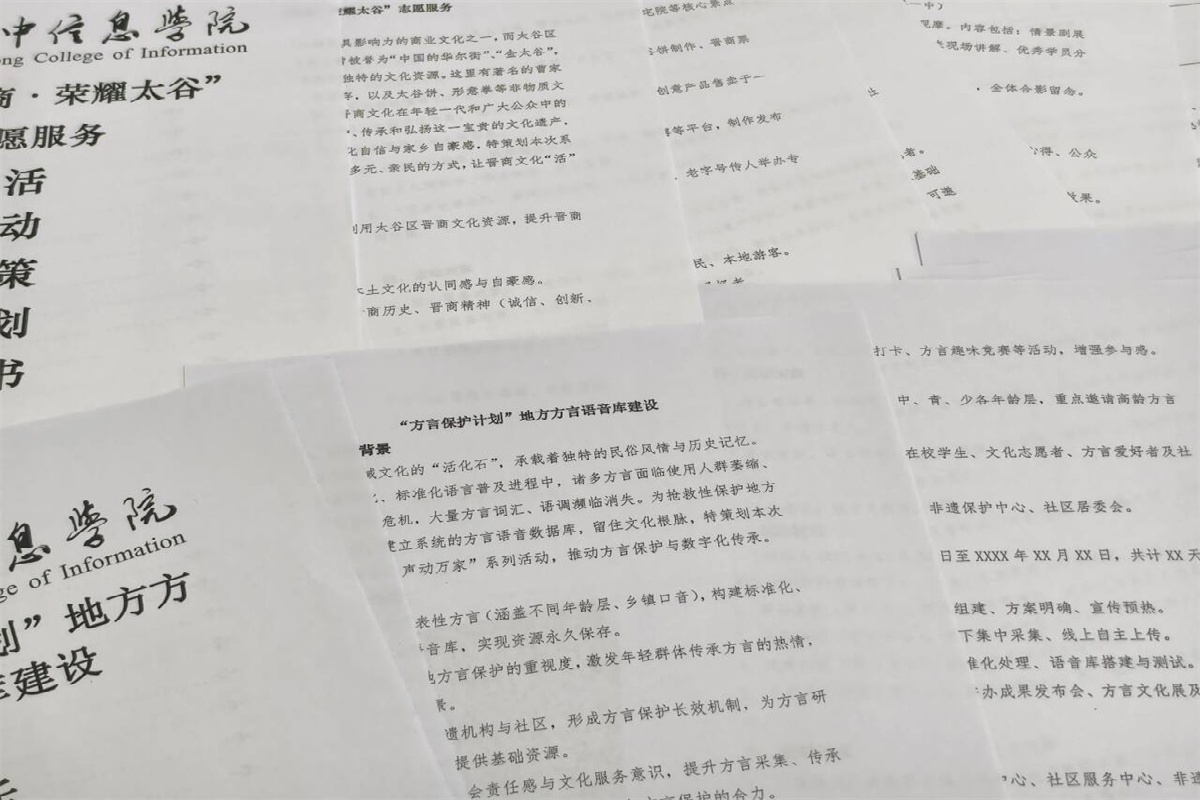 中信息学院
ng College of Information
商·荣耀太谷”
愿服务
活
动
策
划
书
耀太谷”志愿服务
具影响力的商业文化之一,而太谷区
被誉为“中国的华尔街”、“金太谷”,
独特的文化资源。这里有著名的曹家
以及太谷饼、形意拳等非物质文
商文化在年轻一代和广大公众中的
、传承和弘扬这一宝贵的文化遗产,
化自信与家乡自豪感,特策划本次系
多元、亲民的方式,让晋商文化“活”
利用太谷区晋商文化资源,提升晋商
本土文化的认同感与自豪感。
商历史、晋商精神(诚信、创新、
宅院等核心景点
饼制作、晋商票
创意产品售卖于一
等平台,制作发布
、老字号传人举办专
民、本地游客。
一中)
观摩。内容包括:情景剧展
现场讲解、优秀学员分
,全体合影留念。
基础
可邀
得、公众
效果。
息学院
ge of Information
划”地方方
库建设
“方言保护计划”地方方言语音库建设
背景
域文化的“活化石”,承载着独特的民俗风情与历史记忆。
、标准化语言普及进程中,诸多方言面临使用人群萎缩、
危机,大量方言词汇、语调濒临消失。为抢救性保护地方
建立系统的方言语音数据库,留住文化根脉,特策划本次
声动万家”系列活动,推动方言保护与数字化传承。
表性方言(涵盖不同年龄层、乡镇口音),构建标准化、
音库,实现资源永久保存。
方言保护的重视度,激发年轻群体传承方言的热情,
遗机构与社区,形成方言保护长效机制,为方言研
提供基础资源。
会责任感与文化服务意识,提升方言采集、传承
方言保护的合力。
打卡、方言趣味竞赛等活动,增强参与感。
中、青、少各年龄层,重点邀请高龄方言
在校学生、文化志愿者、方言爱好者及社
非遗保护中心、社区居委会。
日至 XXXX 年 XX 月 XX 日,共计 XX 天
组建、方案明确、宣传预热。
下集中采集、线上自主上传。
准化处理、语音库搭建与测试。
办成果发布会、方言文化展及
心、社区服务中心、非遗